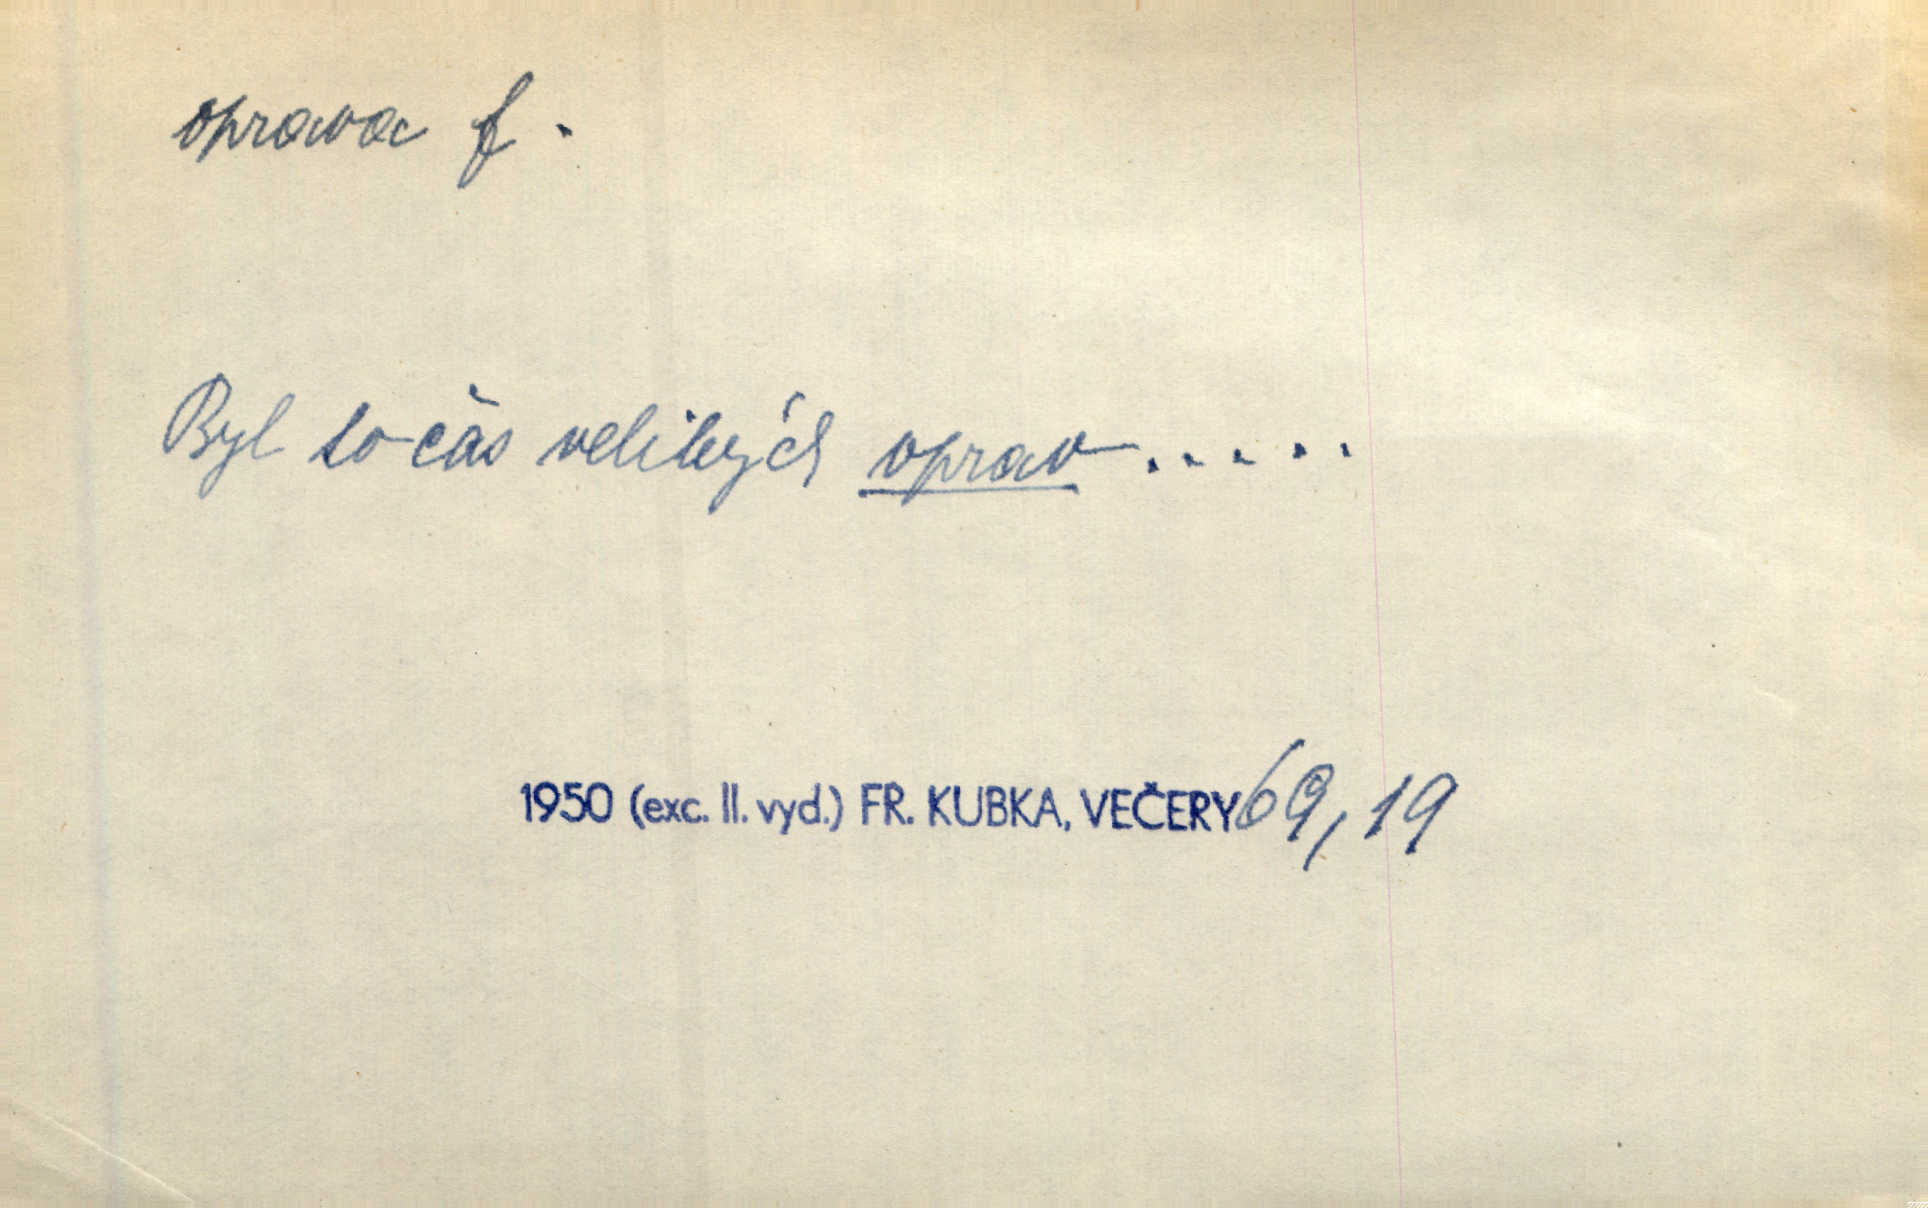 oprava f.
Byl to čas velikých oprav.....
1950 (exc. II. vyd.) FR. KUBKA, VEČERY 69, 19